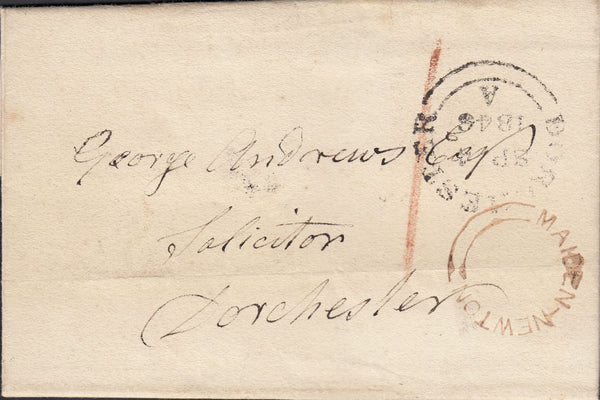 George Andrews Esqr
Solicitor
Dorchester
DORCHESTER
A
1848
SP
MAIDEN-NEWTON